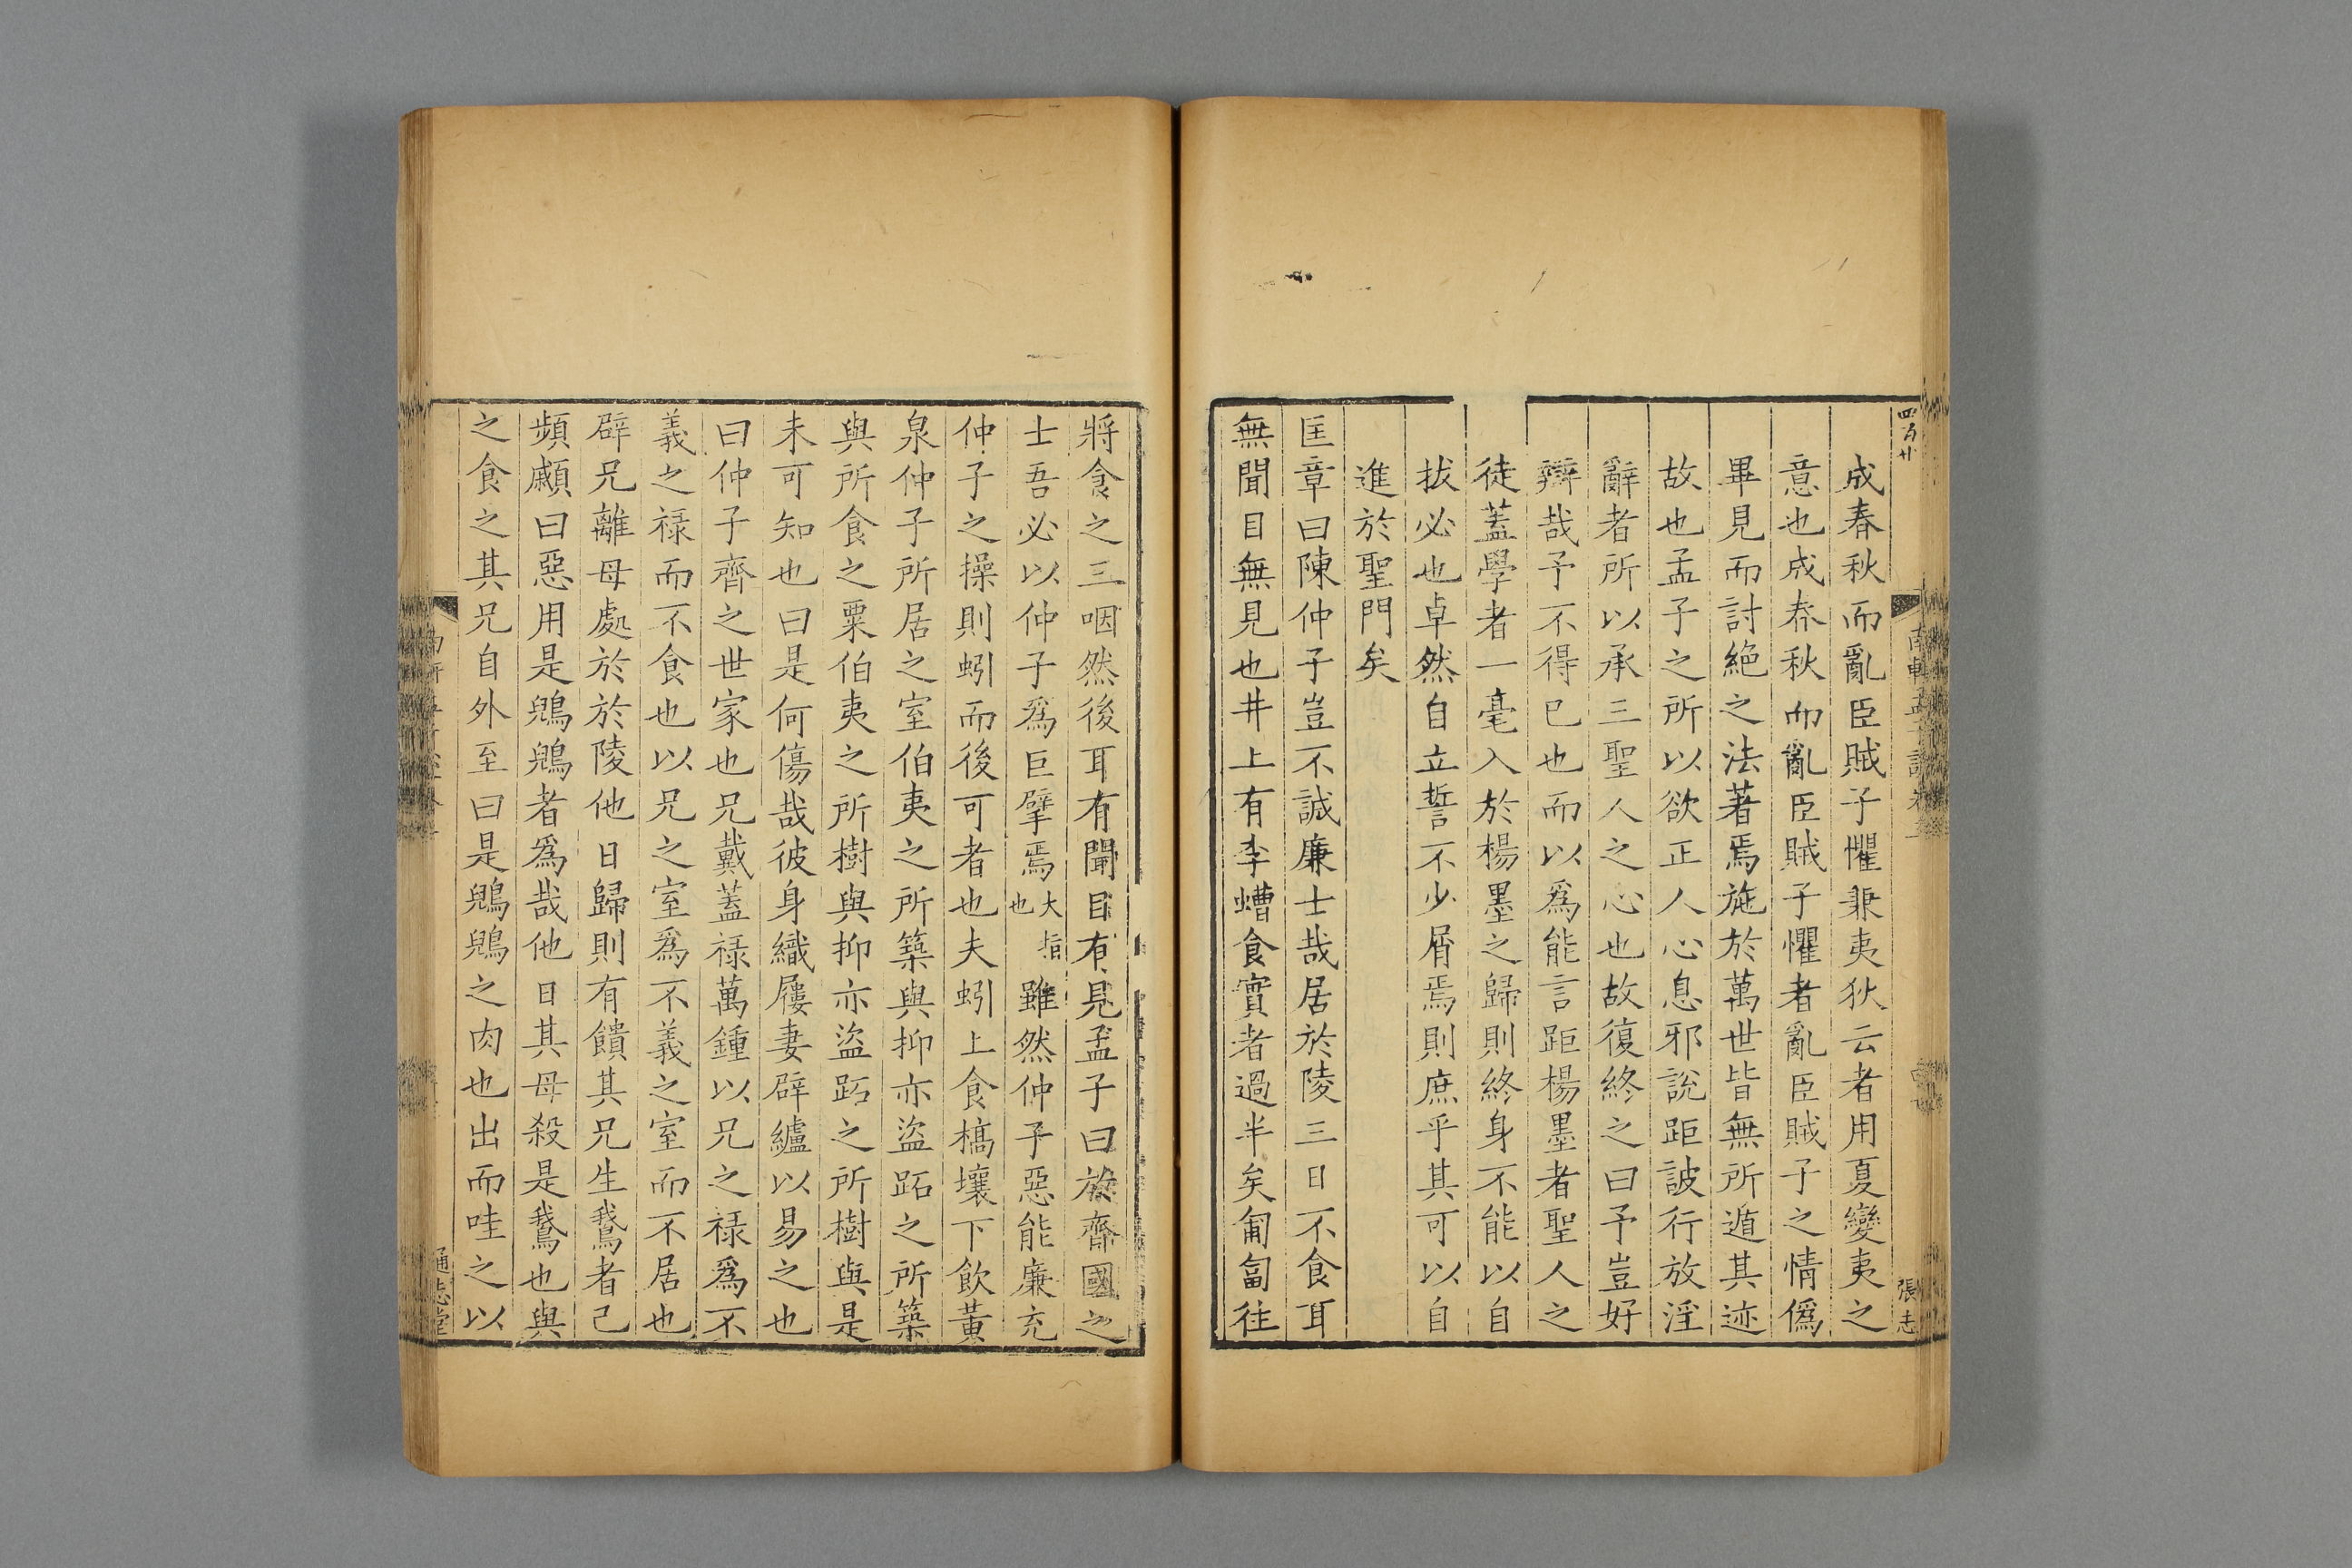 四百廿
成春秋而亂臣賊子懼兼夷狄云者用夏變夷之
意也成春秋而亂臣賊子懼者亂臣賊子之情僞
畢見而討絕之法著焉施於萬世皆無所遁其迹
故也孟子之所以欲正人心息邪說距詖行放淫
辭者所以承三聖人之心也故復終之曰予豈好
辯哉予不得已也而以爲能言距楊墨者聖人之
徒蓋學者一毫入於楊墨之歸則終身不能以自
拔必也卓然自立誓不少屑焉則庶乎其可以自
進於聖門矣
匡章曰陳仲子豈不誠廉士哉居於陵三日不食耳
無聞目無見也井上有李螬食實者過半矣匍匐往
南軒孟子說卷
張志
將食之三咽然後耳有聞目有見孟子曰於齊國之
士吾必以仲子爲巨擘焉大指也雖然仲子惡能廉充
仲子之操則蚓而後可者也夫蚓上食槁壤下飲黃
泉仲子所居之室伯夷之所築與抑亦盜跖之所築
與所食之粟伯夷之所樹與抑亦盜跖之所樹與是
未可知也曰是何傷哉彼身織屨妻辟纑以易之也
曰仲子齊之世家也兄戴蓋祿萬鍾以兄之祿爲不
義之祿而不食也以兄之室爲不義之室而不居也
辟兄離母處於於陵他日歸則有饋其兄生鵞者己
頻顣曰惡用是鶃鶃者爲哉他日其母殺是鵞也與
之食之其兄自外至曰是鶃鶃之肉也出而哇之以
通志堂